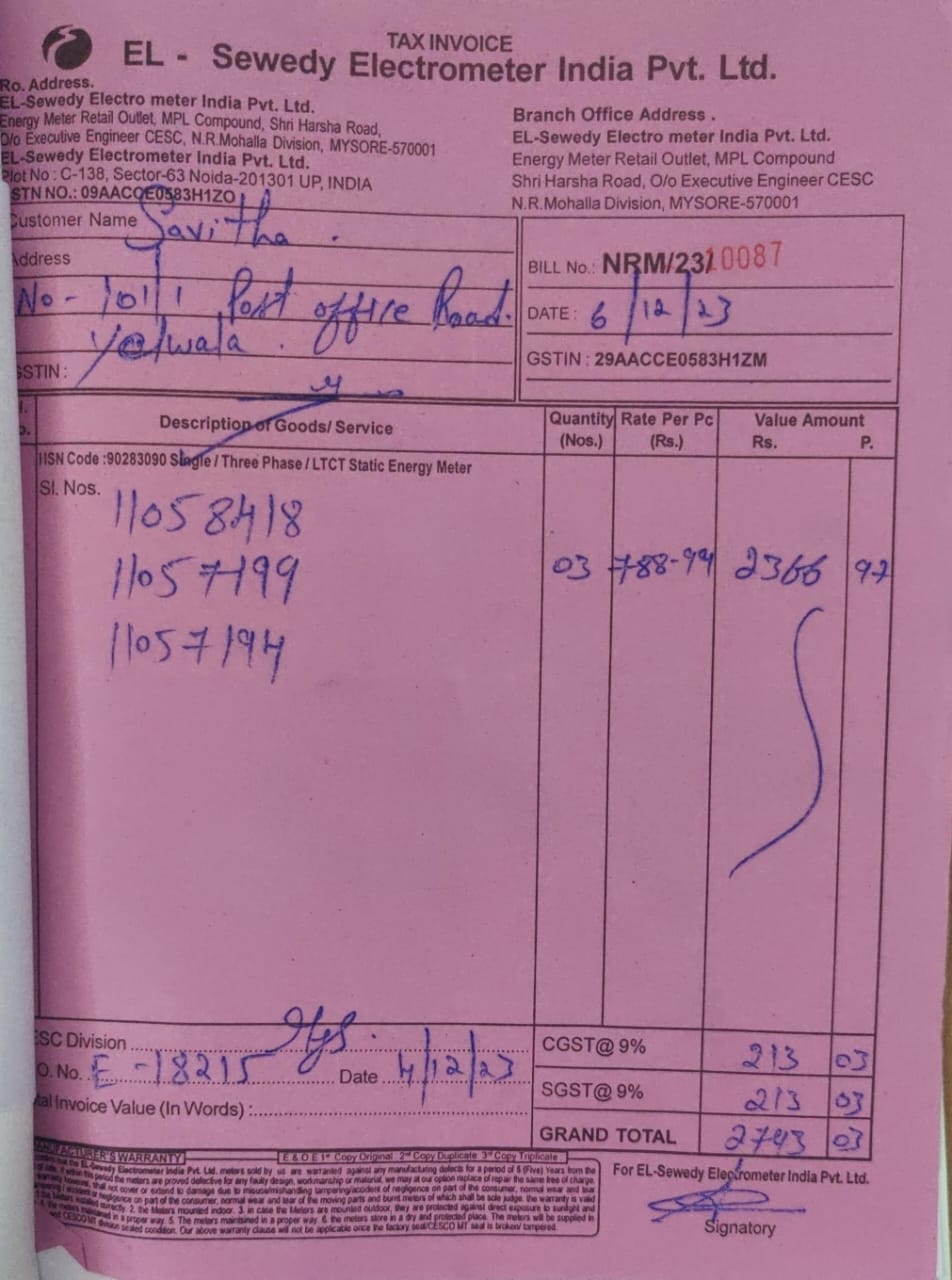 TAX INVOICE
EL - Sewedy Electrometer India Pvt. Ltd.
Ro. Address.
EL-Sewedy Electro meter India Pvt. Ltd.
Energy Meter Retail Outlet, MPL Compound, Shri Harsha Road,
O/o Executive Engineer CESC, N.R.Mohalla Division, MYSORE-570001
EL-Sewedy Electrometer India Pvt. Ltd.
Plot No : C-138, Sector-63 Noida-201301 UP, INDIA
STN NO.: 09AACCE0583H1ZO
Branch Office Address .
EL-Sewedy Electro meter India Pvt. Ltd.
Energy Meter Retail Outlet, MPL Compound
Shri Harsha Road, O/o Executive Engineer CESC
N.R.Mohalla Division, MYSORE-570001
Customer Name Savitha .
Address
No - 101/1 Post office Road.
Yelwala .
GSTIN :
BILL No.: NRM/23/ 10087
DATE : 6/12/23
GSTIN : 29AACCE0583H1ZM
Description of Goods/ Service Quantity (Nos.) Rate Per Pc (Rs.) Value Amount Rs. P.
HSN Code :90283090 Single / Three Phase / LTCT Static Energy Meter
Sl. Nos.
11058418
11057199 03 788-99 2366 97
11057194
ESC Division
O. No. E - 18215 Date 4/12/23
tal Invoice Value (In Words) :
CGST@ 9% 213 03
SGST@ 9% 213 03
GRAND TOTAL 2793 03
MANUFACTURER'S WARRANTY
E & O E 1st Copy Original 2nd Copy Duplicate 3rd Copy Triplicate
For EL-Sewedy Electrometer India Pvt. Ltd.
Signatory